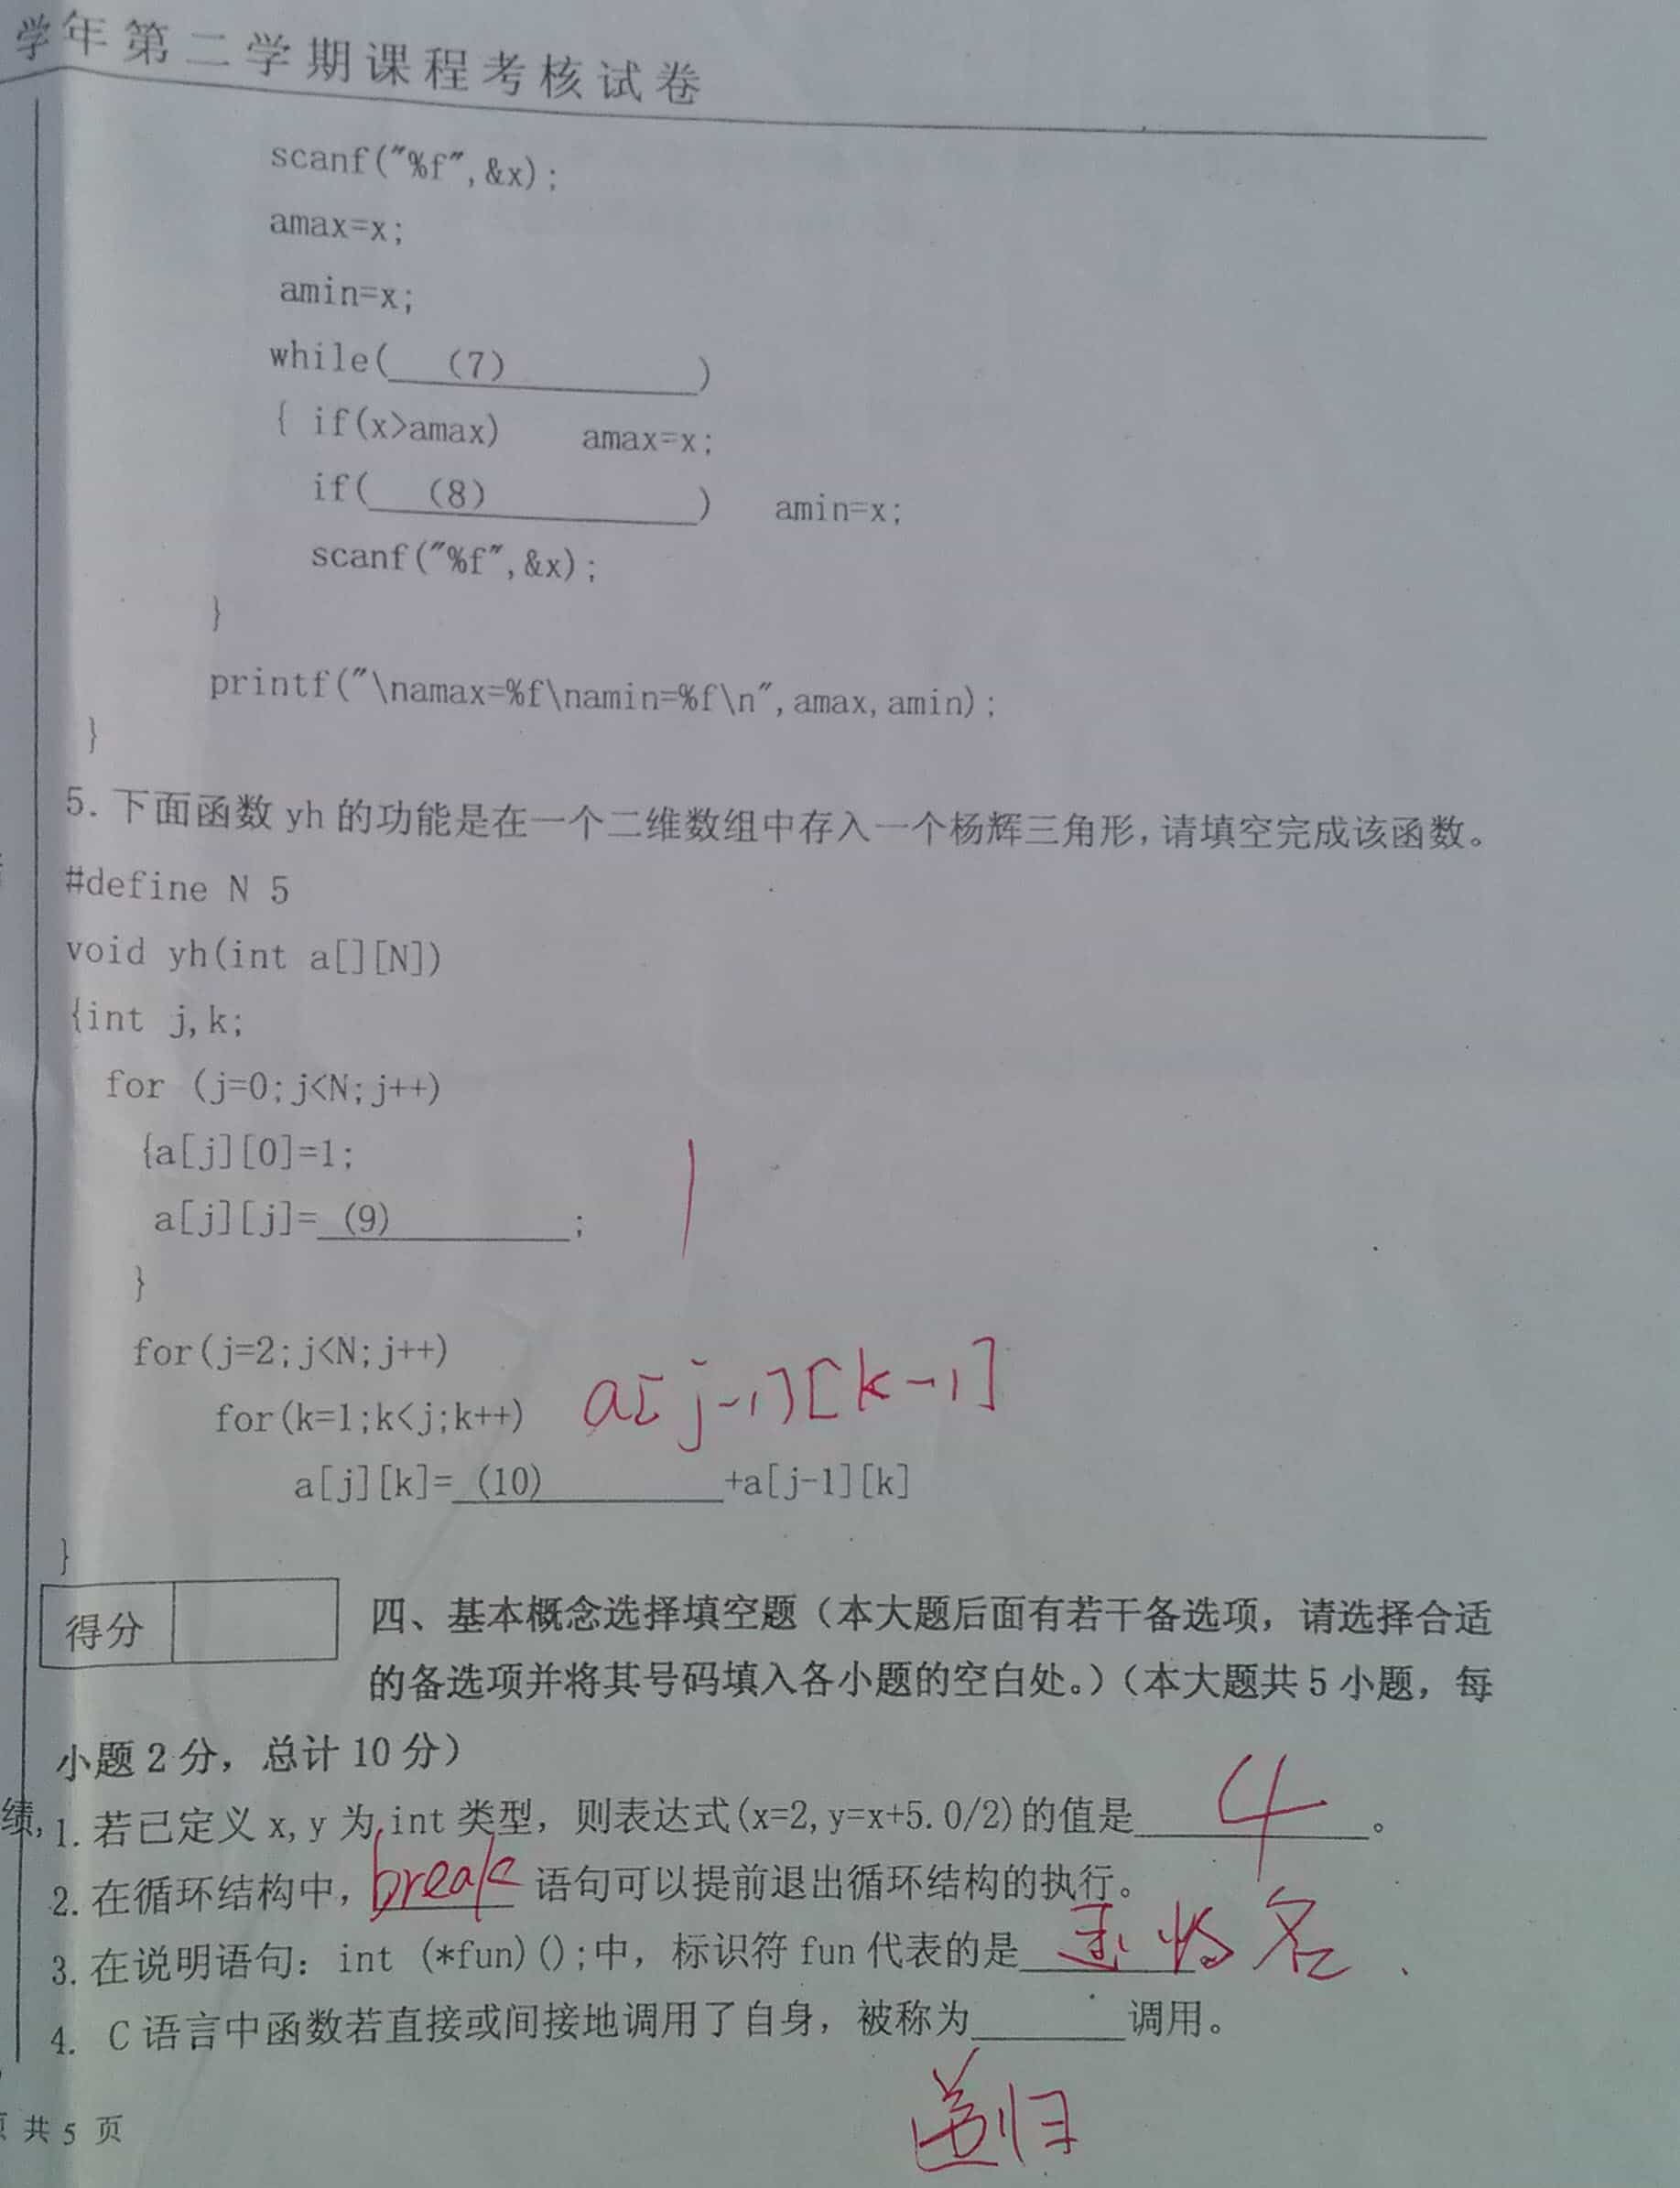 学年第二学期课程考核试卷
scanf("%f",&x);
amax=x;
amin=x;
while( (7) )
{ if(x>amax) amax=x;
if( (8) ) amin=x;
scanf("%f",&x);
}
printf("\namax=%f\namin=%f\n",amax,amin);
}
5. 下面函数 yh 的功能是在一个二维数组中存入一个杨辉三角形,请填空完成该函数。
#define N 5
void yh(int a[][N])
{int j,k;
for (j=0;j<N;j++)
{a[j][0]=1;
a[j][j]= (9) ; 1
}
for(j=2;j<N;j++)
for(k=1;k<j;k++) a[j-1][k-1]
a[j][k]= (10) +a[j-1][k]
}
得分
四、基本概念选择填空题（本大题后面有若干备选项，请选择合适
的备选项并将其号码填入各小题的空白处。）（本大题共 5 小题，每
小题 2 分，总计 10 分）
绩,
1. 若已定义 x,y 为 int 类型，则表达式(x=2,y=x+5.0/2)的值是 4 。
2. 在循环结构中，break 语句可以提前退出循环结构的执行。
3. 在说明语句：int (*fun)();中，标识符 fun 代表的是 名
4. C 语言中函数若直接或间接地调用了自身，被称为 调用。
递归
共 5 页